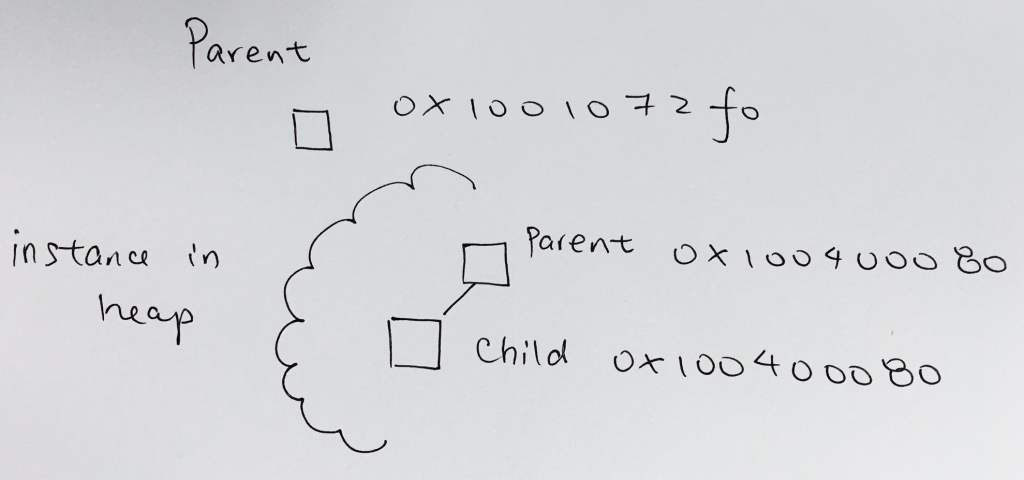 Parent
0x1001072f0
instance in
heap
Parent 0x100400080
Child 0x100400080